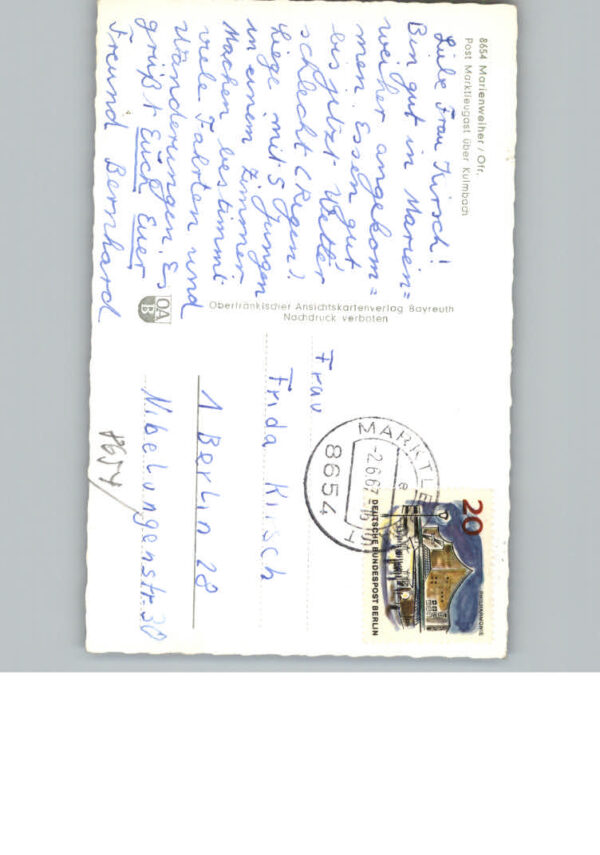 8654 Marienweiher / Ofr.
Post Marktleugast über Kulmbach
Liebe Frau Kirsch!
Bin gut in Marien=
weiher angekom=
men. Essen gut
bis jetzt Wetter
schlecht (Regen)
Liege mit 5 Jungen
in einem Zimmer.
Machen bestimmt
viele Fahrten und
Wanderungen. Es
grüßt Euch Euer
Freund Bernhard
OAV
B
Oberfränkischer Ansichtskartenverlag Bayreuth
Nachdruck verboten
Frau
Frida Kirsch
1 Berlin 28
Nibelungenstr. 30
8654
MARKTLE
-2.6.67
e
8654
20
PHILHARMONIE
DEUTSCHE BUNDESPOST BERLIN